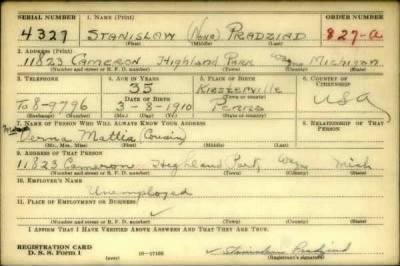 SERIAL NUMBER 1. NAME (Print) ORDER NUMBER
4327 STANISLAW (None) PRADZIAD 827-A
(First) (Middle) (Last)
2. ADDRESS (Print)
11823 CAMERON HIGHLAND PARK Wayne MICHIGAN
(Number and street or R. F. D. number) (Town) (County) (State)
3. TELEPHONE 4. AGE IN YEARS 5. PLACE OF BIRTH 6. COUNTRY OF CITIZENSHIP
35
To 8-9796 DATE OF BIRTH USA
3-8-1910 PENNA
(Exchange) (No.) (Mo.) (Day) (Yr.) (State or country)
7. NAME OF PERSON WHO WILL ALWAYS KNOW YOUR ADDRESS 8. RELATIONSHIP OF THAT PERSON
Verna Mattis (Cousin)
(Mr., Mrs., Miss) (First) (Middle) (Last)
9. ADDRESS OF THAT PERSON
11823 Cameron Highland Park, Wayne Mich
(Number and street or R. F. D. number) (Town) (County) (State)
10. EMPLOYER'S NAME
Unemployed
11. PLACE OF EMPLOYMENT OR BUSINESS
(Number and street or R. F. D. number) (Town) (County) (State)
I AFFIRM THAT I HAVE VERIFIED ABOVE ANSWERS AND THAT THEY ARE TRUE.
REGISTRATION CARD
D. S. S. Form 1 16-17105 Stanislaw Pradziad
(Registrant's signature)